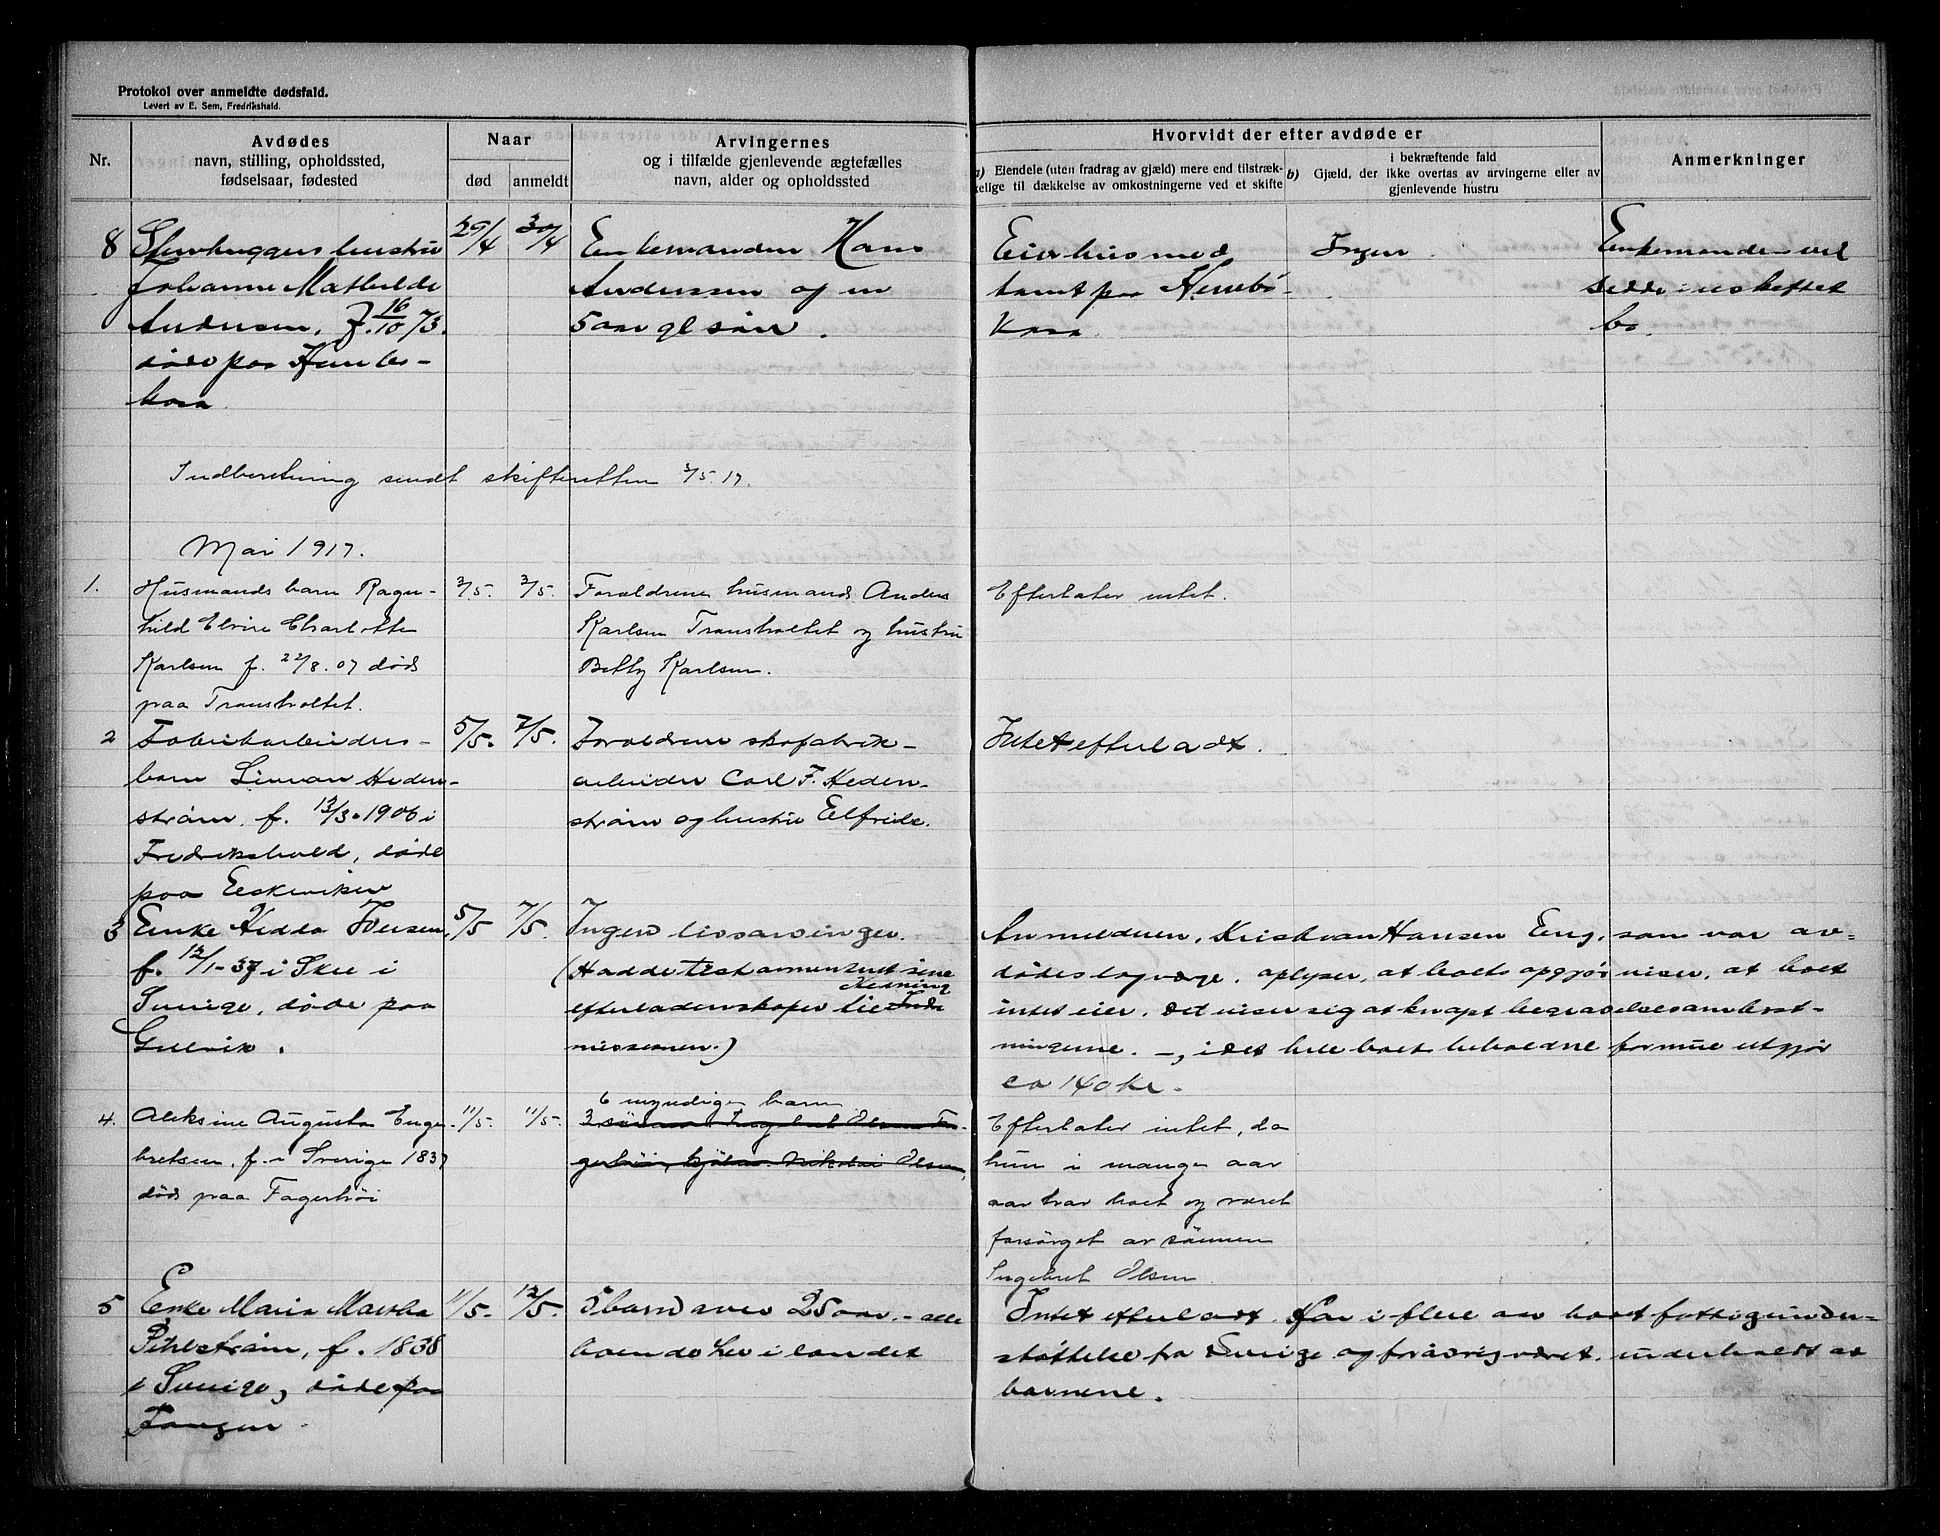 Protokol over anmeldte dødsfald.
Levert av E. Sem, Fredrikshald.
Nr.
Avdødes
navn, stilling, opholdssted,
fødselsaar, fødested
Naar
død
anmeldt
Arvingernes
og i tilfælde gjenlevende ægtefælles
navn, alder og opholdssted
Hvorvidt der efter avdøde er
a) Eiendele (uten fradrag av gjæld) mere end tilstræk-
kelige til dækkelse av omkostningerne ved et skifte
i bekræftende fald
b) Gjæld, der ikke overtas av arvingerne eller av
gjenlevende hustru
Anmerkninger
8
Stenhuggers hustru
Johanne Mathilde
Andersen, f. 16/10 73.
døde paa
29/4
30/4
Enkemanden Hans
Anderssen og en
5 aar gl søn.
Eier hus med
tomt paa
Ingen
Enkemanden vil
sidde i uskiftet
bo.
Indberetning sendt skifteretten 3/5. 17.
Mai 1917.
1.
Husmands barn Ragn-
hild Elvire Charlotte
Karlsen f. 22/8. 07 død
paa Transholtet.
3/5.
3/5.
Forældrene husmand Anders
Karlsen Transholtet og hustru
Betty Karlsen.
Efterlater intet.
2
Fabrikarbeiders-
barn Heden-
strøm, f. 13/3-1906 i
Fredrikshald, døde
paa Eskeviken
5/5.
7/5.
Forældrene skofabrik-
arbeider Carl F. Heden-
strøm og hustru Elfride.
Intet efterladt.
3
Enke Hedda Iversen,
f. 12/1-37 i Skee i
Sverige, døde paa
5/5
7/5.
Ingen livsarvinger.
(Hadde testamentert sine
Hedning
efterladenskaper til Indre
missionen.)
Anmelderen, Kristian Hansen Eng, som var av-
dødes lagværge, oplyser, at boets opgjør viser, at boet
intet eier. Det viser sig at knapt begravelsesomkost-
ningerne. -, i det hele boet beholdne formue utgjør
ca 140 kr.
4.
Aleksine Augusta Enge-
bretsen, f. i Sverige 1837
død paa Fagerhøi
11/5.
11/5.
6 myndige barn
3 sönner Ingebret Olsen Fa-
gerhöi, Nikolai Olsen,
Efterlater intet, da
hun i mange aar
aar har boet og været
forsörget av sönnen
Ingebret Olsen
5
Enke Maria Martha
Pihlström, f. 1838
i Sverige, døde paa
Tangen.
11/5.
12/5.
5 barn over 25 aar, - alle
boende her i landet
Intet efterladt. Har i flere aar havt fattigunder-
støttelse fra Sverige og forøvrig været underholdt av
barnene.